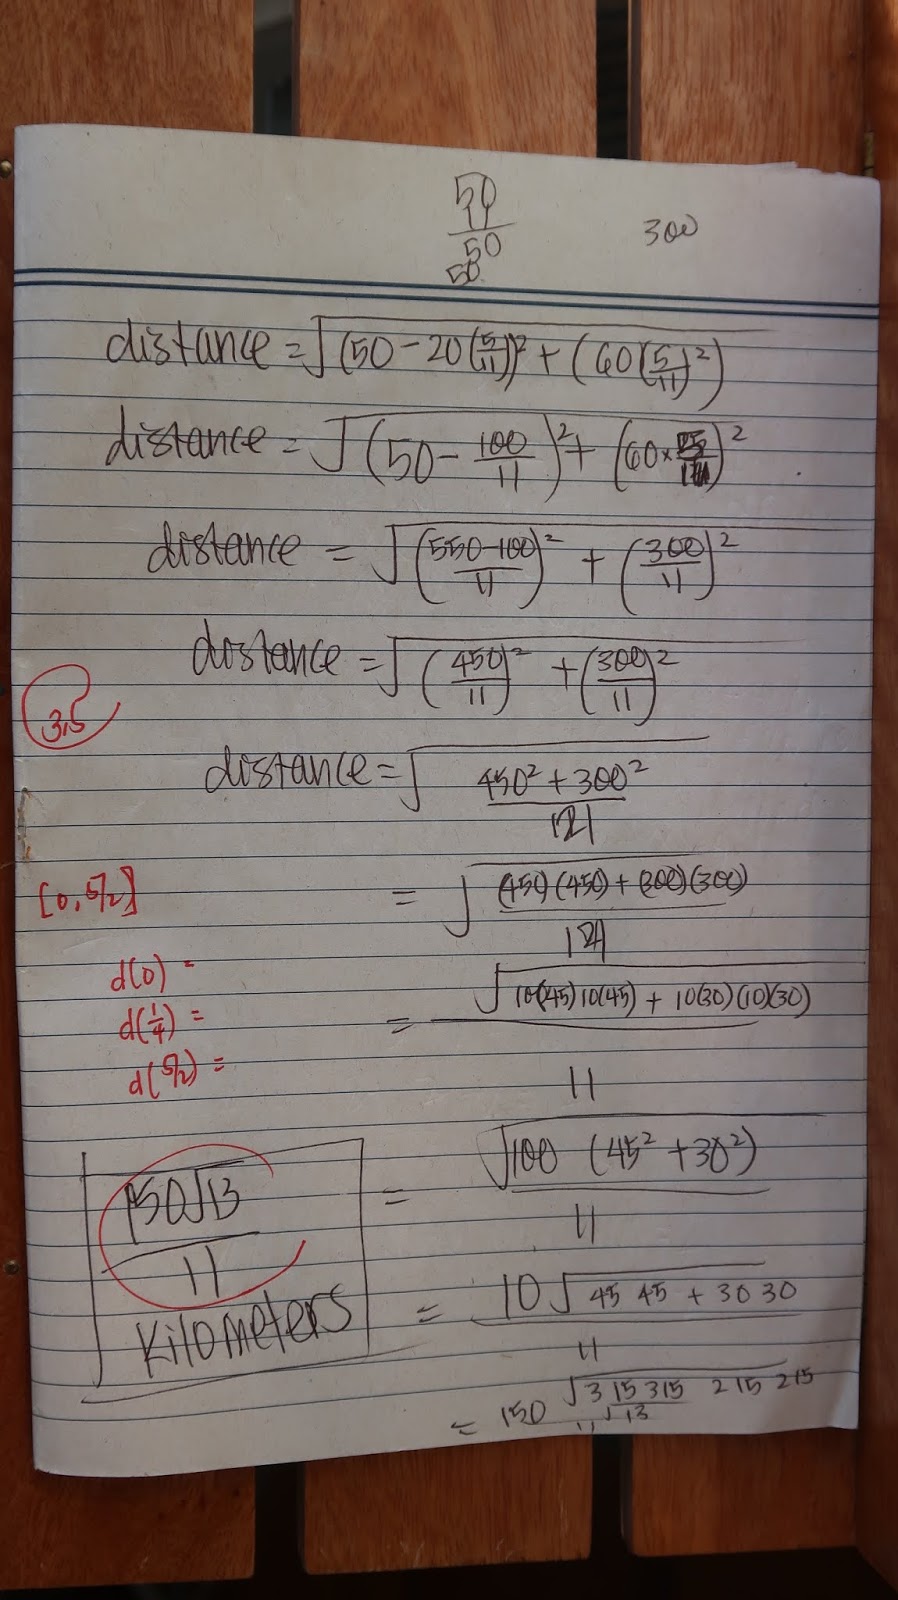 50
11
50
50
300
distance = √(50 - 20(5/11))² + (60(5/11)²)
distance = √(50 - 100/11)² + (60 × )²
distance = √((550-100)/11)² + (300/11)²
distance = √(450/11)² + (300/11)²
3.5
distance = √(450² + 300²)/121
[0, 5/2]
= √((450)(450) + (300)(300))/121
d(0) =
d(1/4) =
d(5/2) =
= √10(45)10(45) + 10(30)(10)(30) / 11
= √100 (45² + 30²) / 11
150√13 / 11
kilometers
= 10√45 45 + 30 30 / 11
√3 15 3 15 2 15 2 15
= 150 √13 / 11